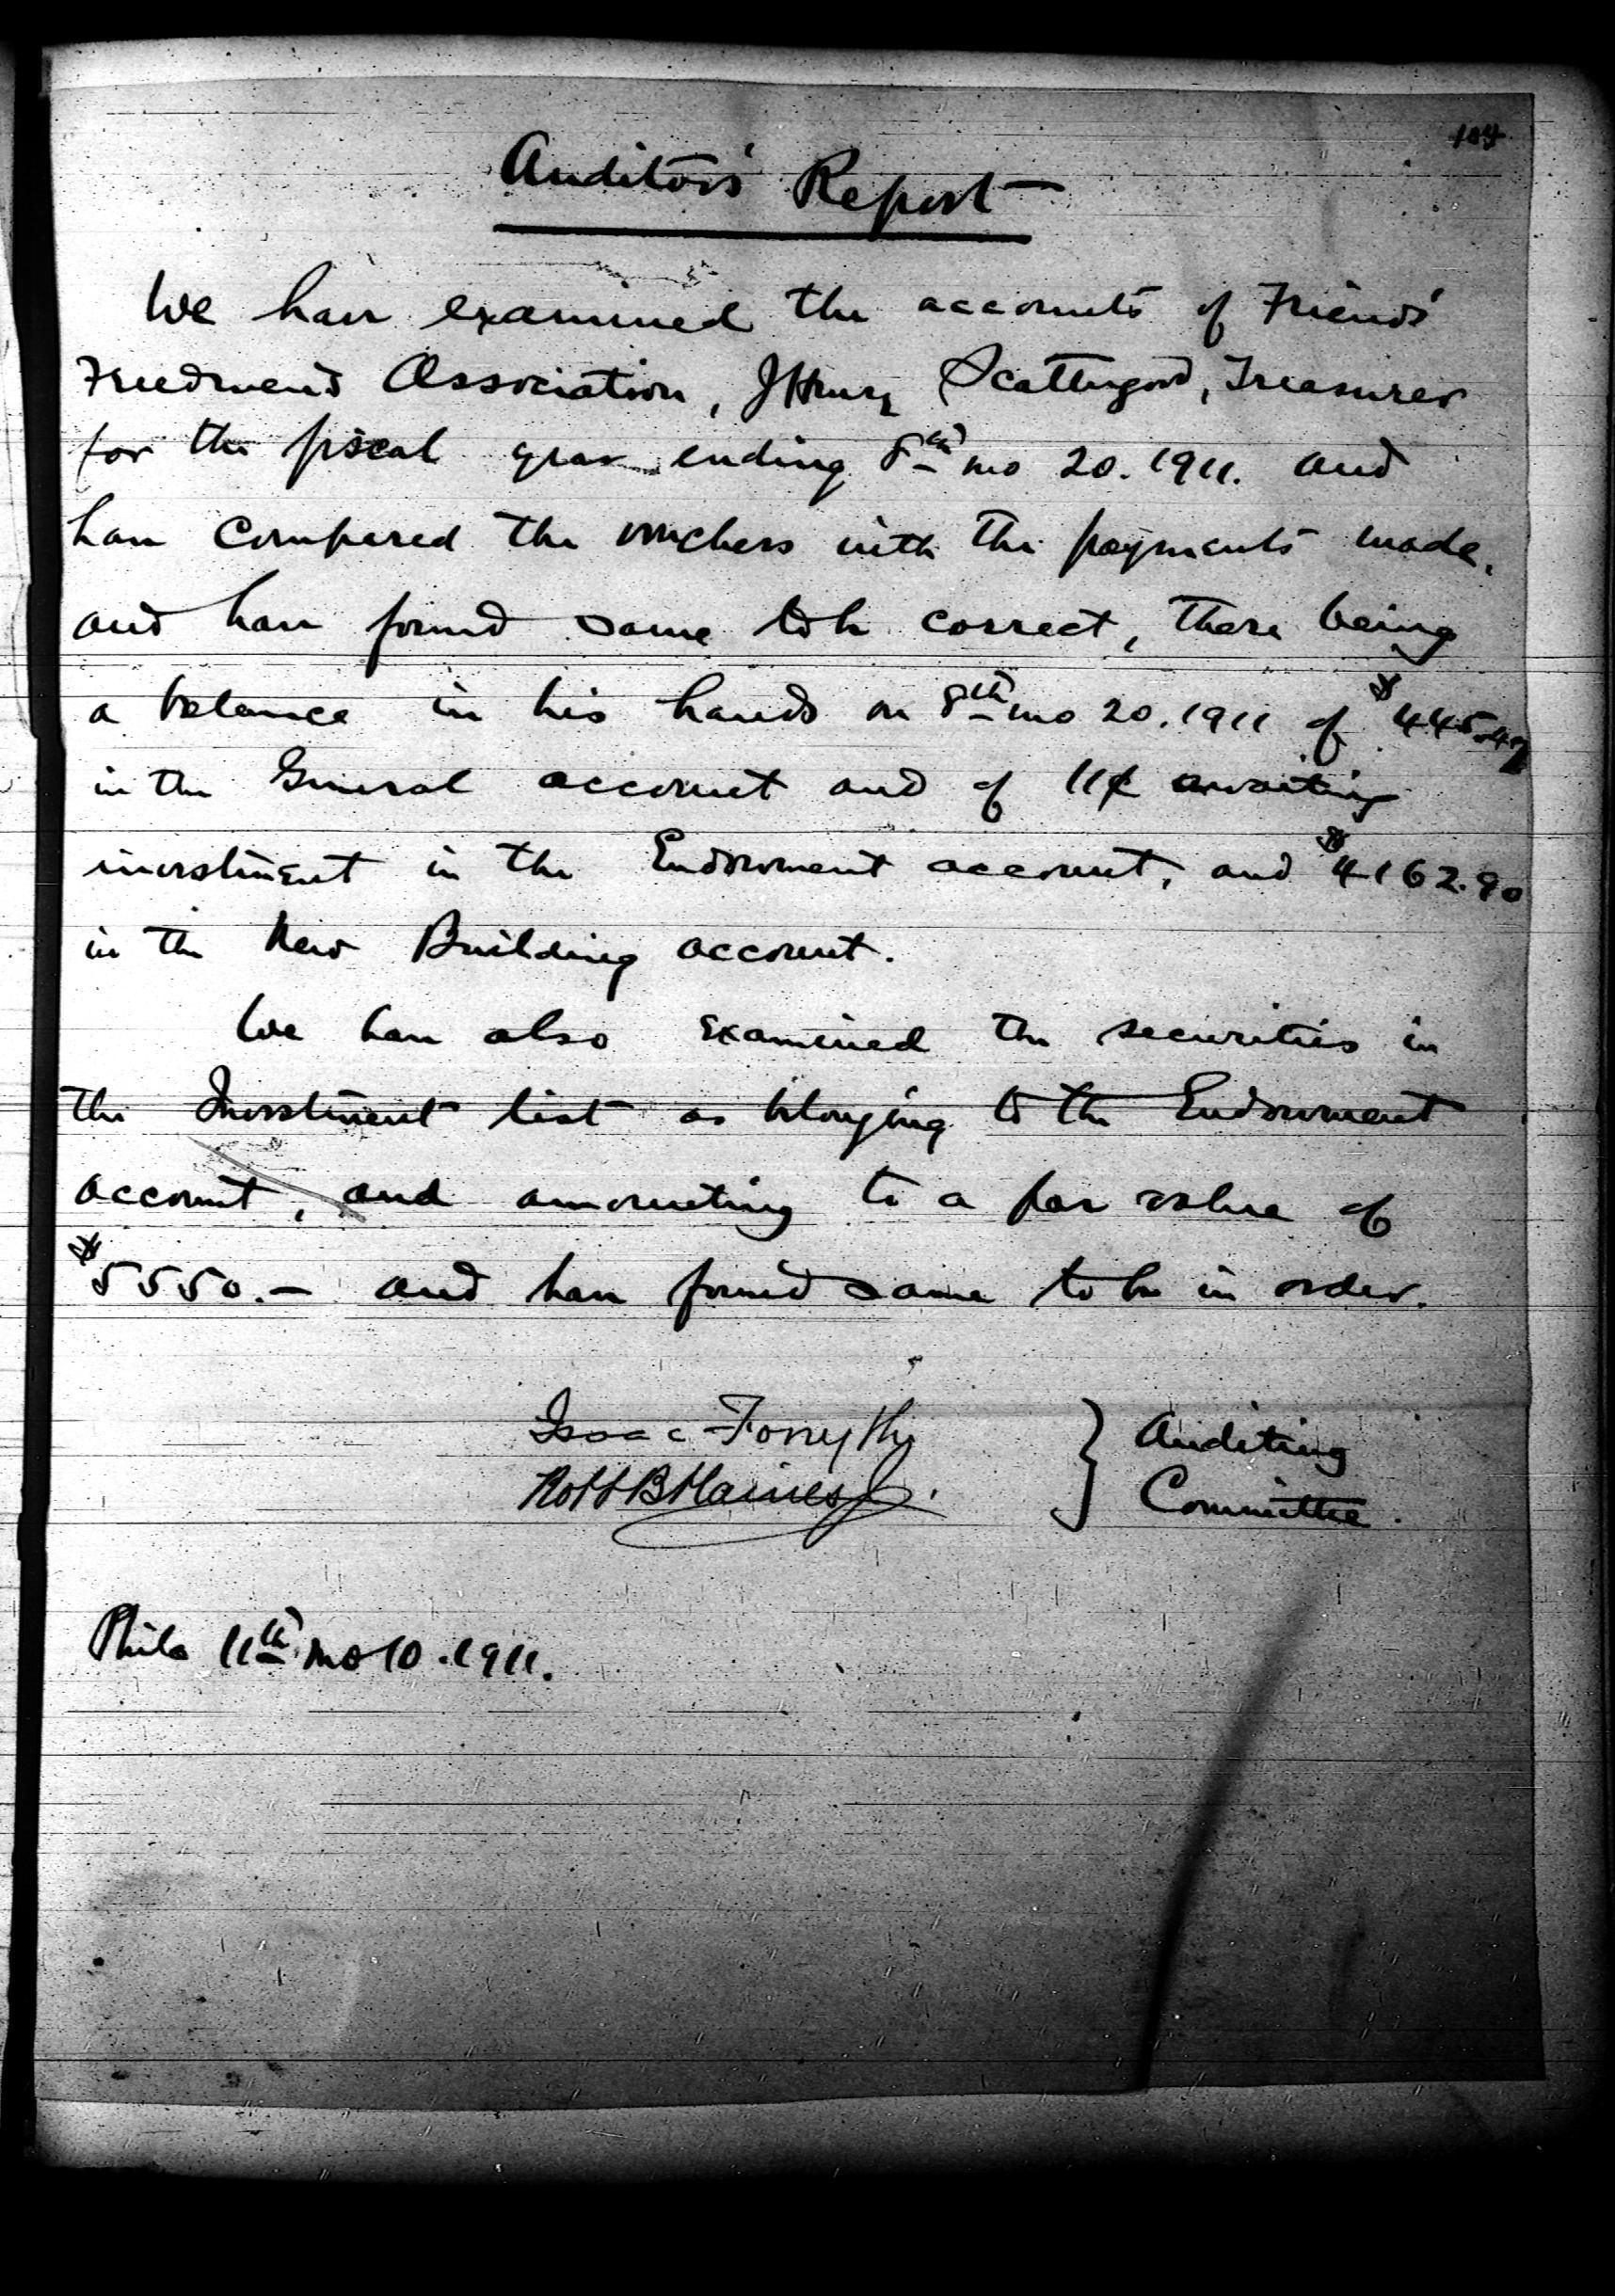 104
Auditors' Report
We have examined the accounts of Friends'
Freedmen's Association, J Henry Scattergood, Treasurer
for the fiscal year ending 8th mo 20. 1911. and
have compared the vouchers with the payments made,
and have found same to be correct, there being
a balance in his hands on 8th mo 20. 1911 of $445.47
in the General account and of 11¢ awaiting
investment in the Endowment account, and $4162.90
in the New Building account.
We have also examined the securities in
the Investment list as belonging to the Endowment
account, and amounting to a par value of
$5550.— and have found same to be in order.
Isaac Forsythe } Auditing
Robt B Haines Jr. Committee.
Phila 11th mo 10. 1911.